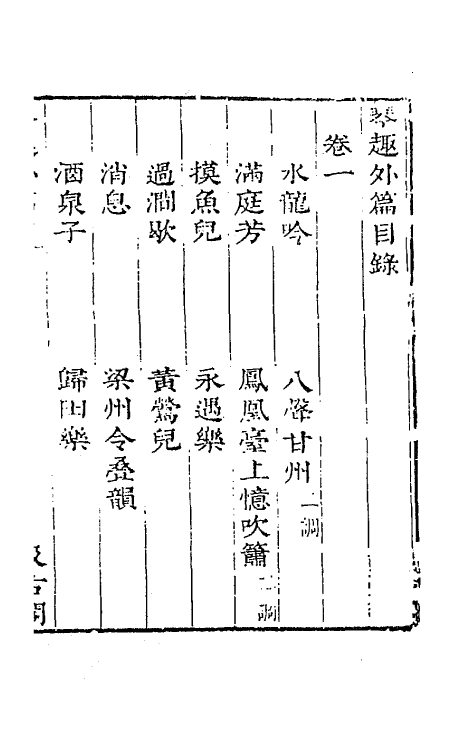 琴趣外篇目錄
卷一
水龍吟　八聲甘州二調
滿庭芳　鳳凰臺上憶吹簫二調
摸魚兒　永遇樂
過澗歇　黃鶯兒
消息　梁州令疊韻
酒泉子　歸田樂
汲古閣